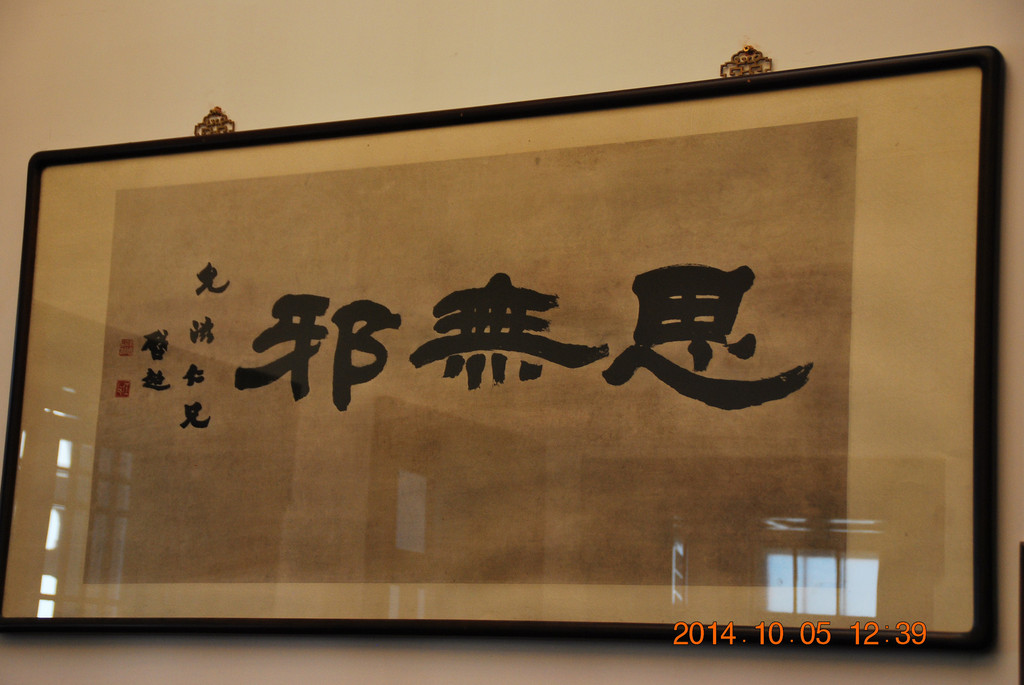 思無邪
允洪仁兄
啓超
2014.10.05 12:39